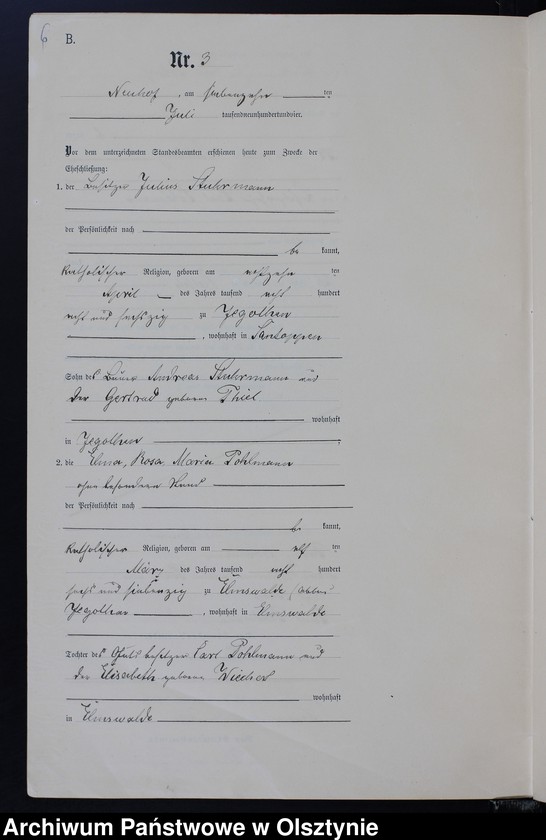 6
B.
Nr. 3
Neuhof, am siebenzehn ten
Juli tausendneunhundertundvier.
Vor dem unterzeichneten Standesbeamten erschienen heute zum Zwecke der
Eheschließung:
1. der Besitzer Julius Stuhrmann
der Persönlichkeit nach
be kannt,
katholischer Religion, geboren am achtzehn ten
April des Jahres tausend acht hundert
acht und sechszig zu Jegothen
, wohnhaft in Santoppen
Sohn des Andreas Stuhrmann und
der Gertrud geborene Thiel
wohnhaft
in Jegothen ,
2. die Elma, Rosa, Maria Pohlmann
ohne besonderen Stand
der Persönlichkeit nach
be kannt,
katholischer Religion, geboren am elf ten
März des Jahres tausend acht hundert
sechs und siebenzig zu Elmswalde
Jegothen , wohnhaft in Elmswalde
Tochter des Gutsbesitzer Carl Pohlmann und
der Elisabeth geborene
wohnhaft
in Elmswalde
Archiwum Państwowe w Olsztynie